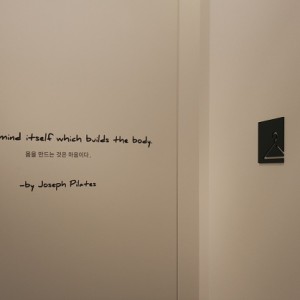 mind itself which builds the body.
몸을 만드는 것은 마음이다.
-by Joseph Pilates